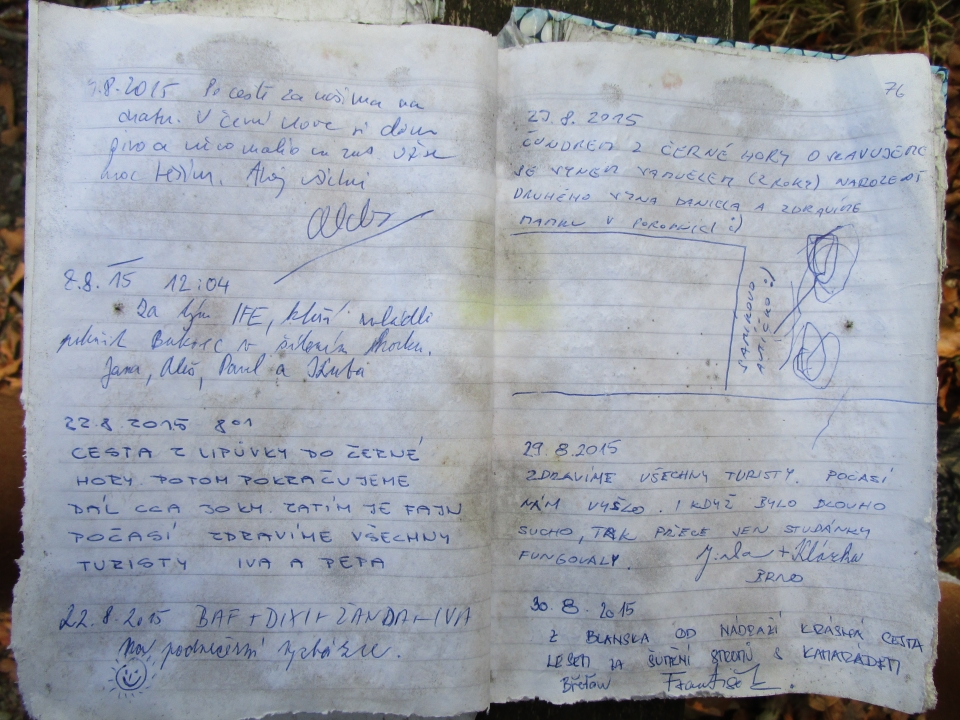 .8.2015 Po cestě za našima na
chatu. V černé hoře si dám
pivo a něco malho
moc těším. Ahoj všichni
8.8.15 12:04
Za tým IFE, kteří zvládli
Bukovec v
Jana, Aleš, Pavel a Kuba
22.8.2015 801
CESTA Z LIPŮVKY DO ČERNÉ
HORY. POTOM POKRAČUJEME
DÁL CCA 30KM. ZATÍM JE FAJN
POČASÍ ZDRAVÍME VŠECHNY
TURISTY IVA A PEPA
22.8.2015 BAF + DIXI + ŽANDA + IVA
Na podvečerní vycházce.
76
23.8.2015
ČUNDREM Z ČERNÉ HORY OSLAVUJEME
SE SYNEM SAMUELEM (2 ROKY) NAROZENÍ
DRUHÉHO SYNA DANIELA A ZDRAVÍME
MAMKU V PORODNICI :)
SAMÍKOVO
AUTÍČKO :)
29.8.2015
ZDRAVÍME VŠECHNY TURISTY. POČASÍ
NÁM VYŠLO. I KDYŽ BYLO DLOUHO
SUCHO, TAK PŘECE JEN STUDÁNKY
FUNGOVALY. Jirka + Klárka
BRNO
30.8.2015
Z BLANSKA OD NÁDRAŽÍ KRÁSNÁ CESTA
LESEM ZA ŠUMĚNÍ STROMŮ S KAMARÁDEM
Břeťou František